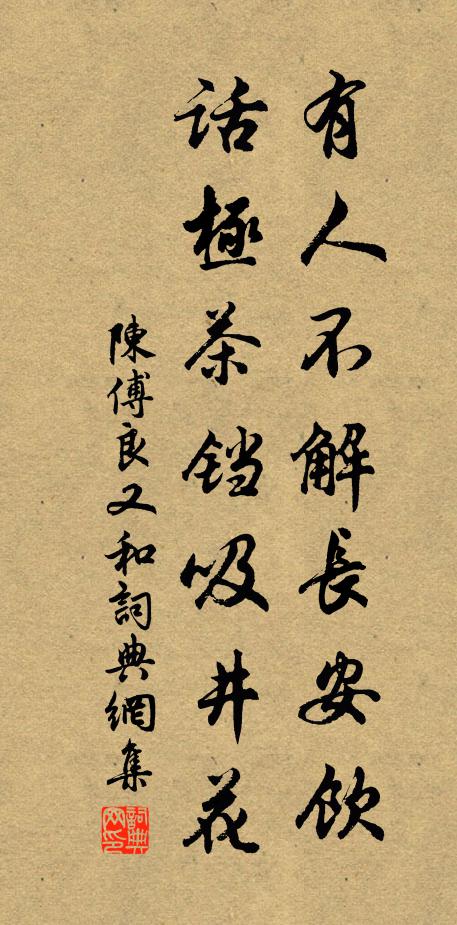 有人不解長安飲
話極茶铛吸井花
陳傅良又和詞典網集
詞典网印